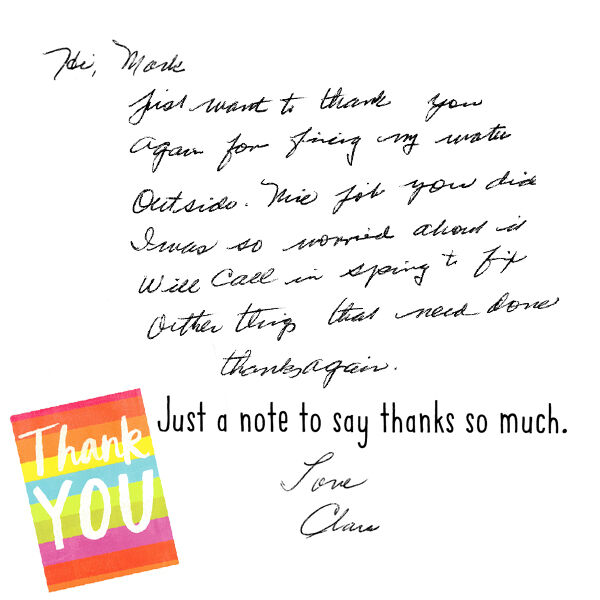 Hi, Mark
Just want to thank you
Again for fixing my water
Outside. Nice job you did
I was so worried about it
Will Call in spring to fix
Outher things that need done
thanks again.
Just a note to say thanks so much.
Thank
YOU
Love
Clara